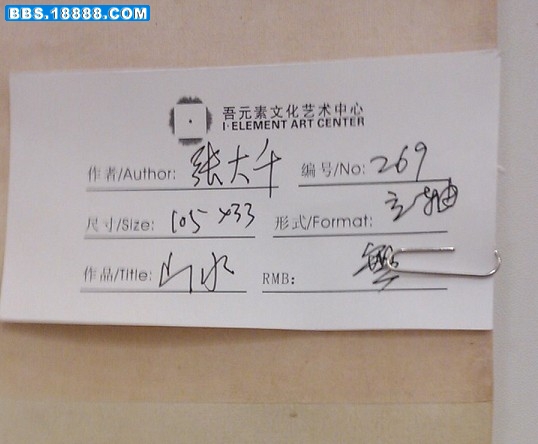 BBS.18888.COM
吾元素文化艺术中心
I·ELEMENT ART CENTER
作者/Author: 张大千 编号/No: 269
尺寸/Size: 105×33 形式/Format: 立轴
作品/Title: 山水 RMB: